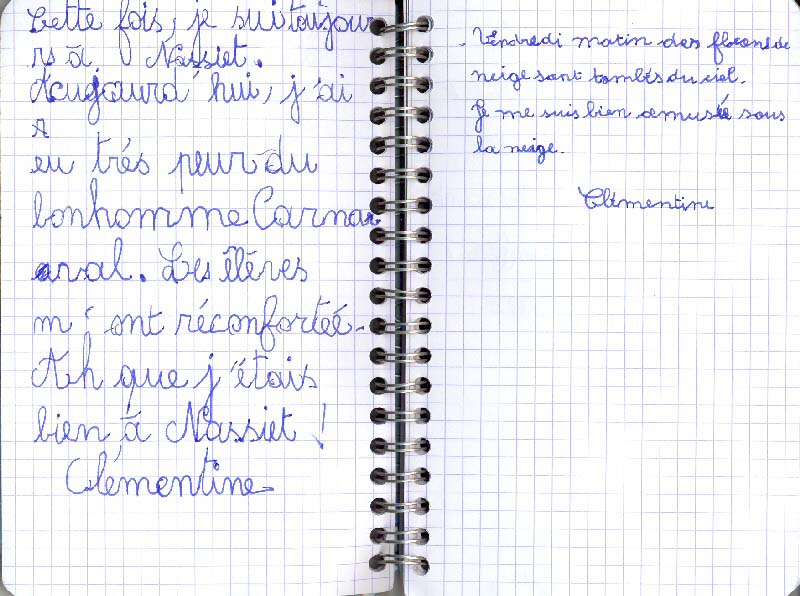 Cette fois, je suitoujou
rs à Nassiet.
Aujourd'hui, j'ai
A
eu trés peur du
bonhomme Carna
aval. Les élèves
m'ont réconforteé.
Ah que j'étais
bien à Nassiet !
Clémentine
. Vendredi matin des flocons de
neige sont tombés du ciel.
Je me suis bien amuseé sous
la neige.
Clémentine